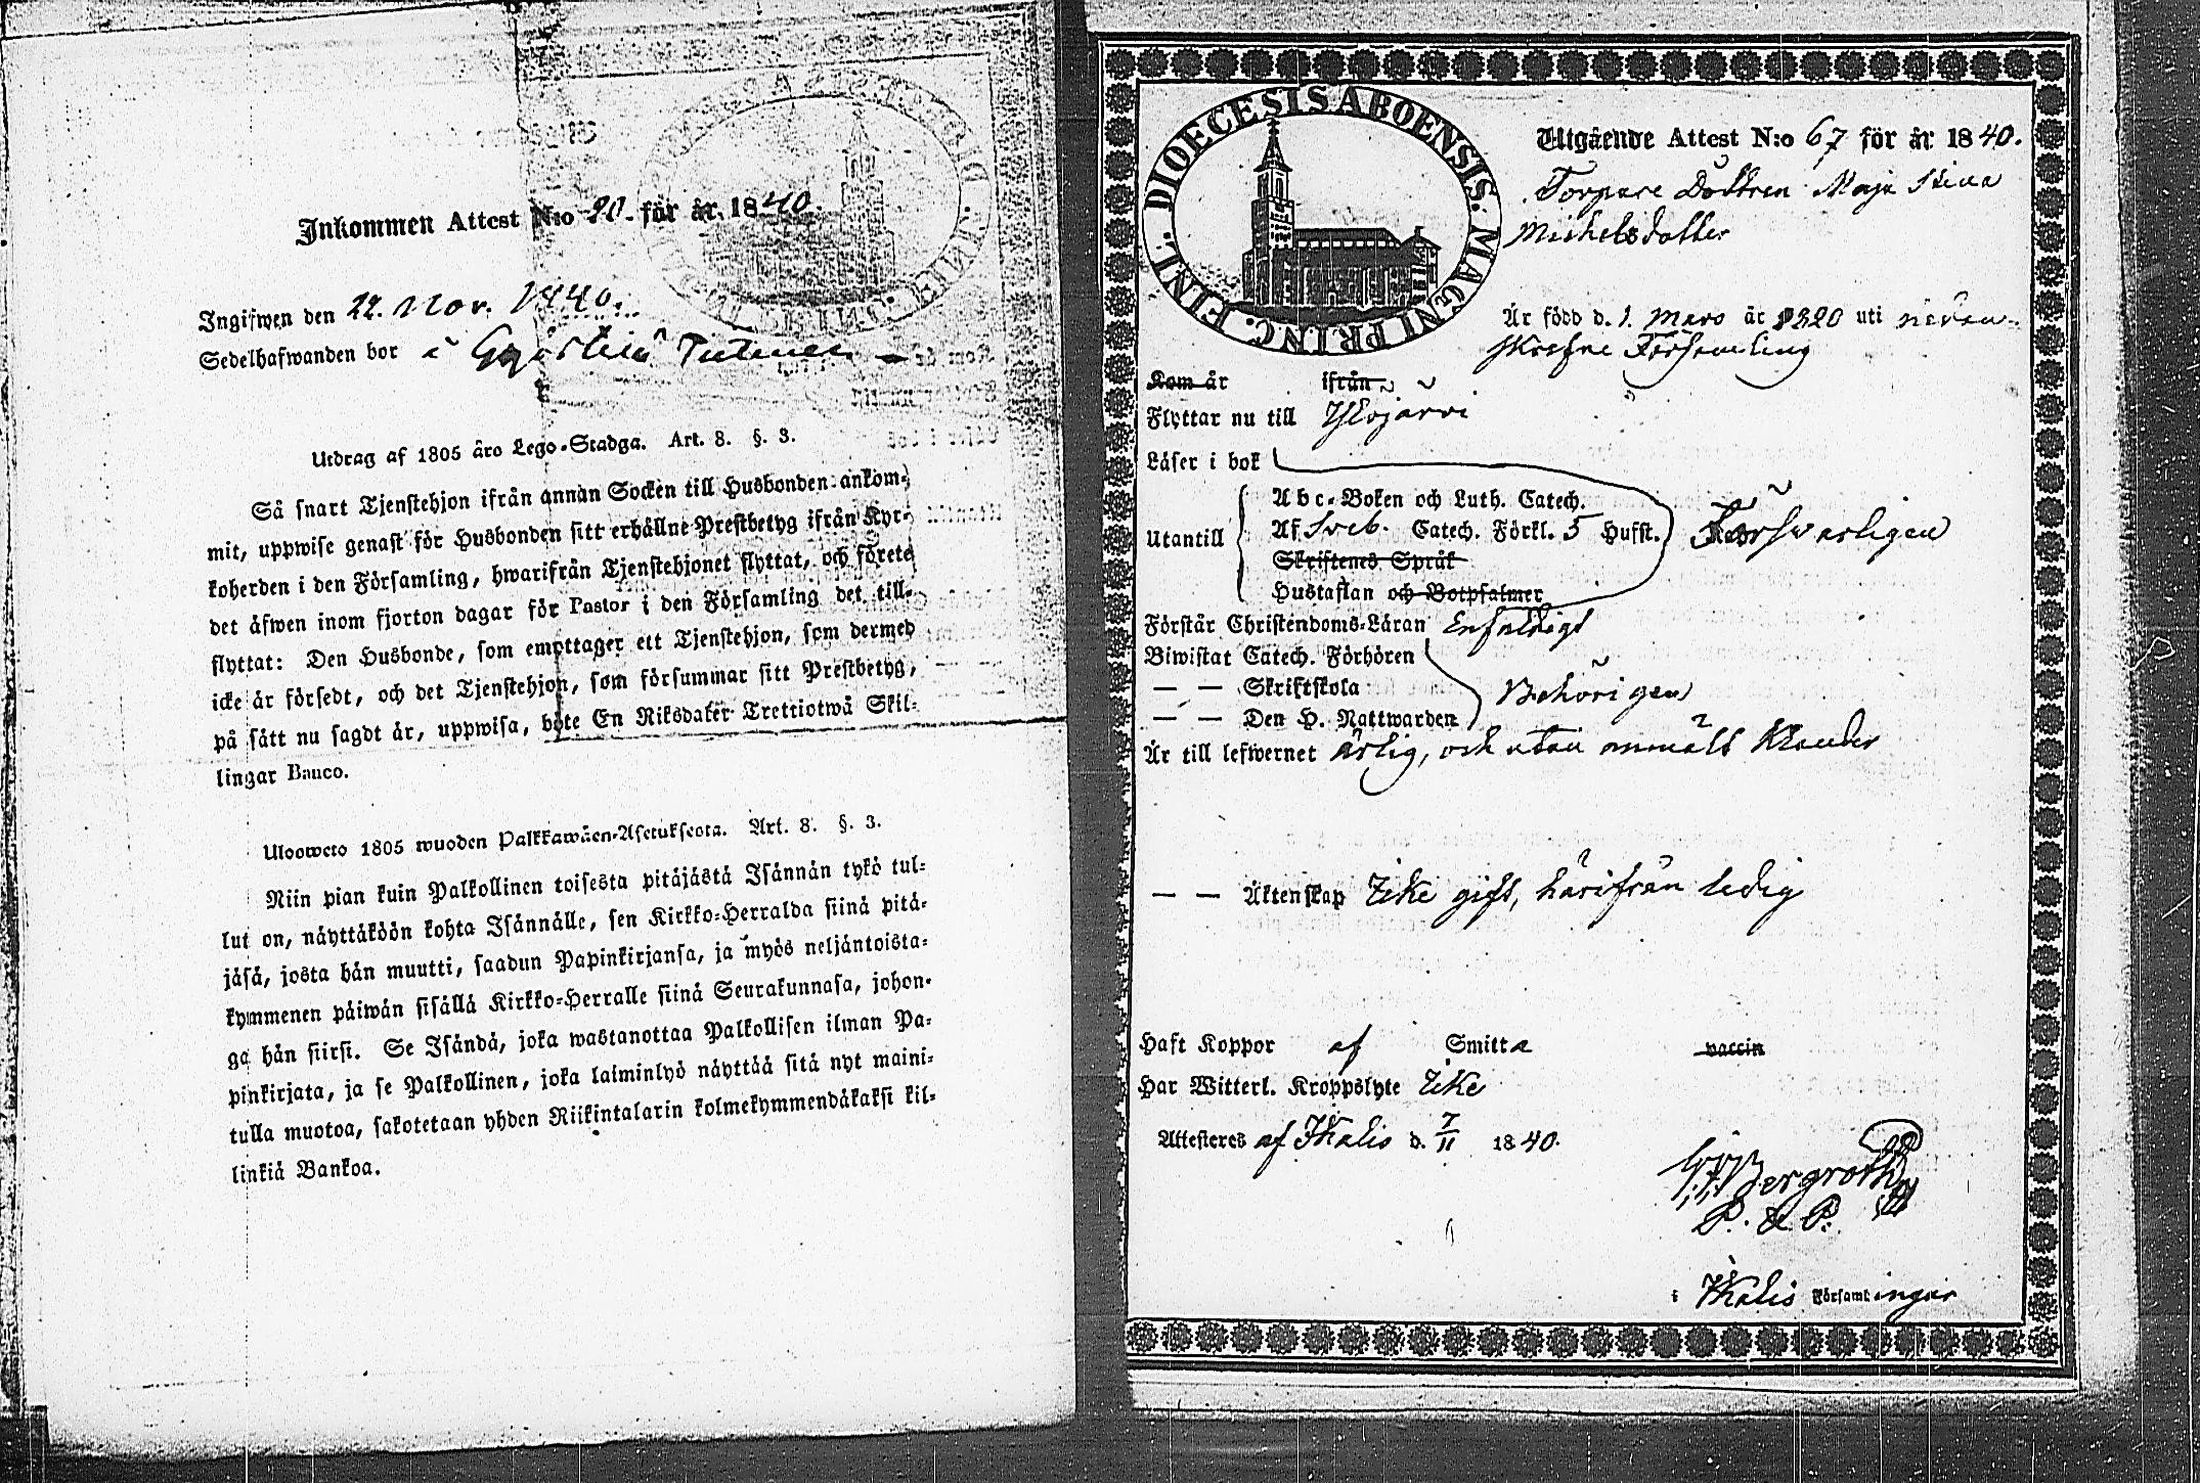 Inkommen Attest N:o 20. för år 1840.
Ingifwen den 22. Nov. 1840.
Sedelhafwanden bor i
Utdrag af 1805 åro Lego-Stadga. Art. 8. §. 3.
Så snart Tjenstehjon ifrån annan Socken till Husbonden ankom-
mit, uppwise genast för Husbonden sitt erhållne Prestbetyg ifrån Kyr-
koherden i den Församling, hwarifrån Tjenstehjonet flyttat, och förete
det äfwen inom fjorton dagar för Pastor i den Församling det till-
flyttat: Den Husbonde, som emottager ett Tjenstehjon, som dermed
icke är försedt, och det Tjenstehjon, som försummar sitt Prestbetyg,
på sätt nu sagdt är, uppwisa, böte En Riksdaler Trettiotwå Skil-
lingar Banco.
Ulosweto 1805 wuoden Palkkawäen-Asetuksesta. Art. 8. §. 3.
Niin pian kuin Palkollinen toisesta pitäjästä Isännän tykö tul-
lut on, näyttäköön kohta Isännälle, sen Kirkko-Herralda siinä pitä-
jäsä, josta hän muutti, saadun Papinkirjansa, ja myös neljäntoista-
kymmenen päiwän sisällä Kirkko-Herralle siinä Seurakunnasa, johon-
ga hän siirsi. Se Isändä, joka wastanottaa Palkollisen ilman Pa-
pinkirjata, ja se Palkollinen, joka laiminlyö näyttää sitä nyt maini-
tulla muotoa, sakotetaan yhden Riikintalarin kolmekymmendäkaksi kil-
linkiä Bankoa.
DIOECESIS ABOENSIS. MAGNI PRINC. FINL.
Utgående Attest N:o 67 för år 1840.
Torpare Dottren Maja Stina
Michelsdotter
Är född d. 1. Mars år 1820 uti
Församling
Kom år ifrån
Flyttar nu till Ylöjärvi
Läser i bok
Utantill
Abc-Boken och Luth. Catech.
Af Sveb. Catech. Förkl. 5 Hufst.
Skriftenes Språk
Hustaflan och Botpsalmer
Försvarligen
Förstår Christendoms-Läran Enfaldigt
Biwistat Catech. Förhören
— — Skriftskola
— — Den H. Nattwarden
Behörigen
Är till lefwernet ärlig, och utan anmält klander
— — Äktenskap Icke gift, härifrån ledig
Haft Koppor af Smitta vaccin
Har Witterl. Kroppslyte Icke
Attesteres af Ikalis d. 7/11 1840.
Bergroth
P. & P.
i Ikalis Församlingar